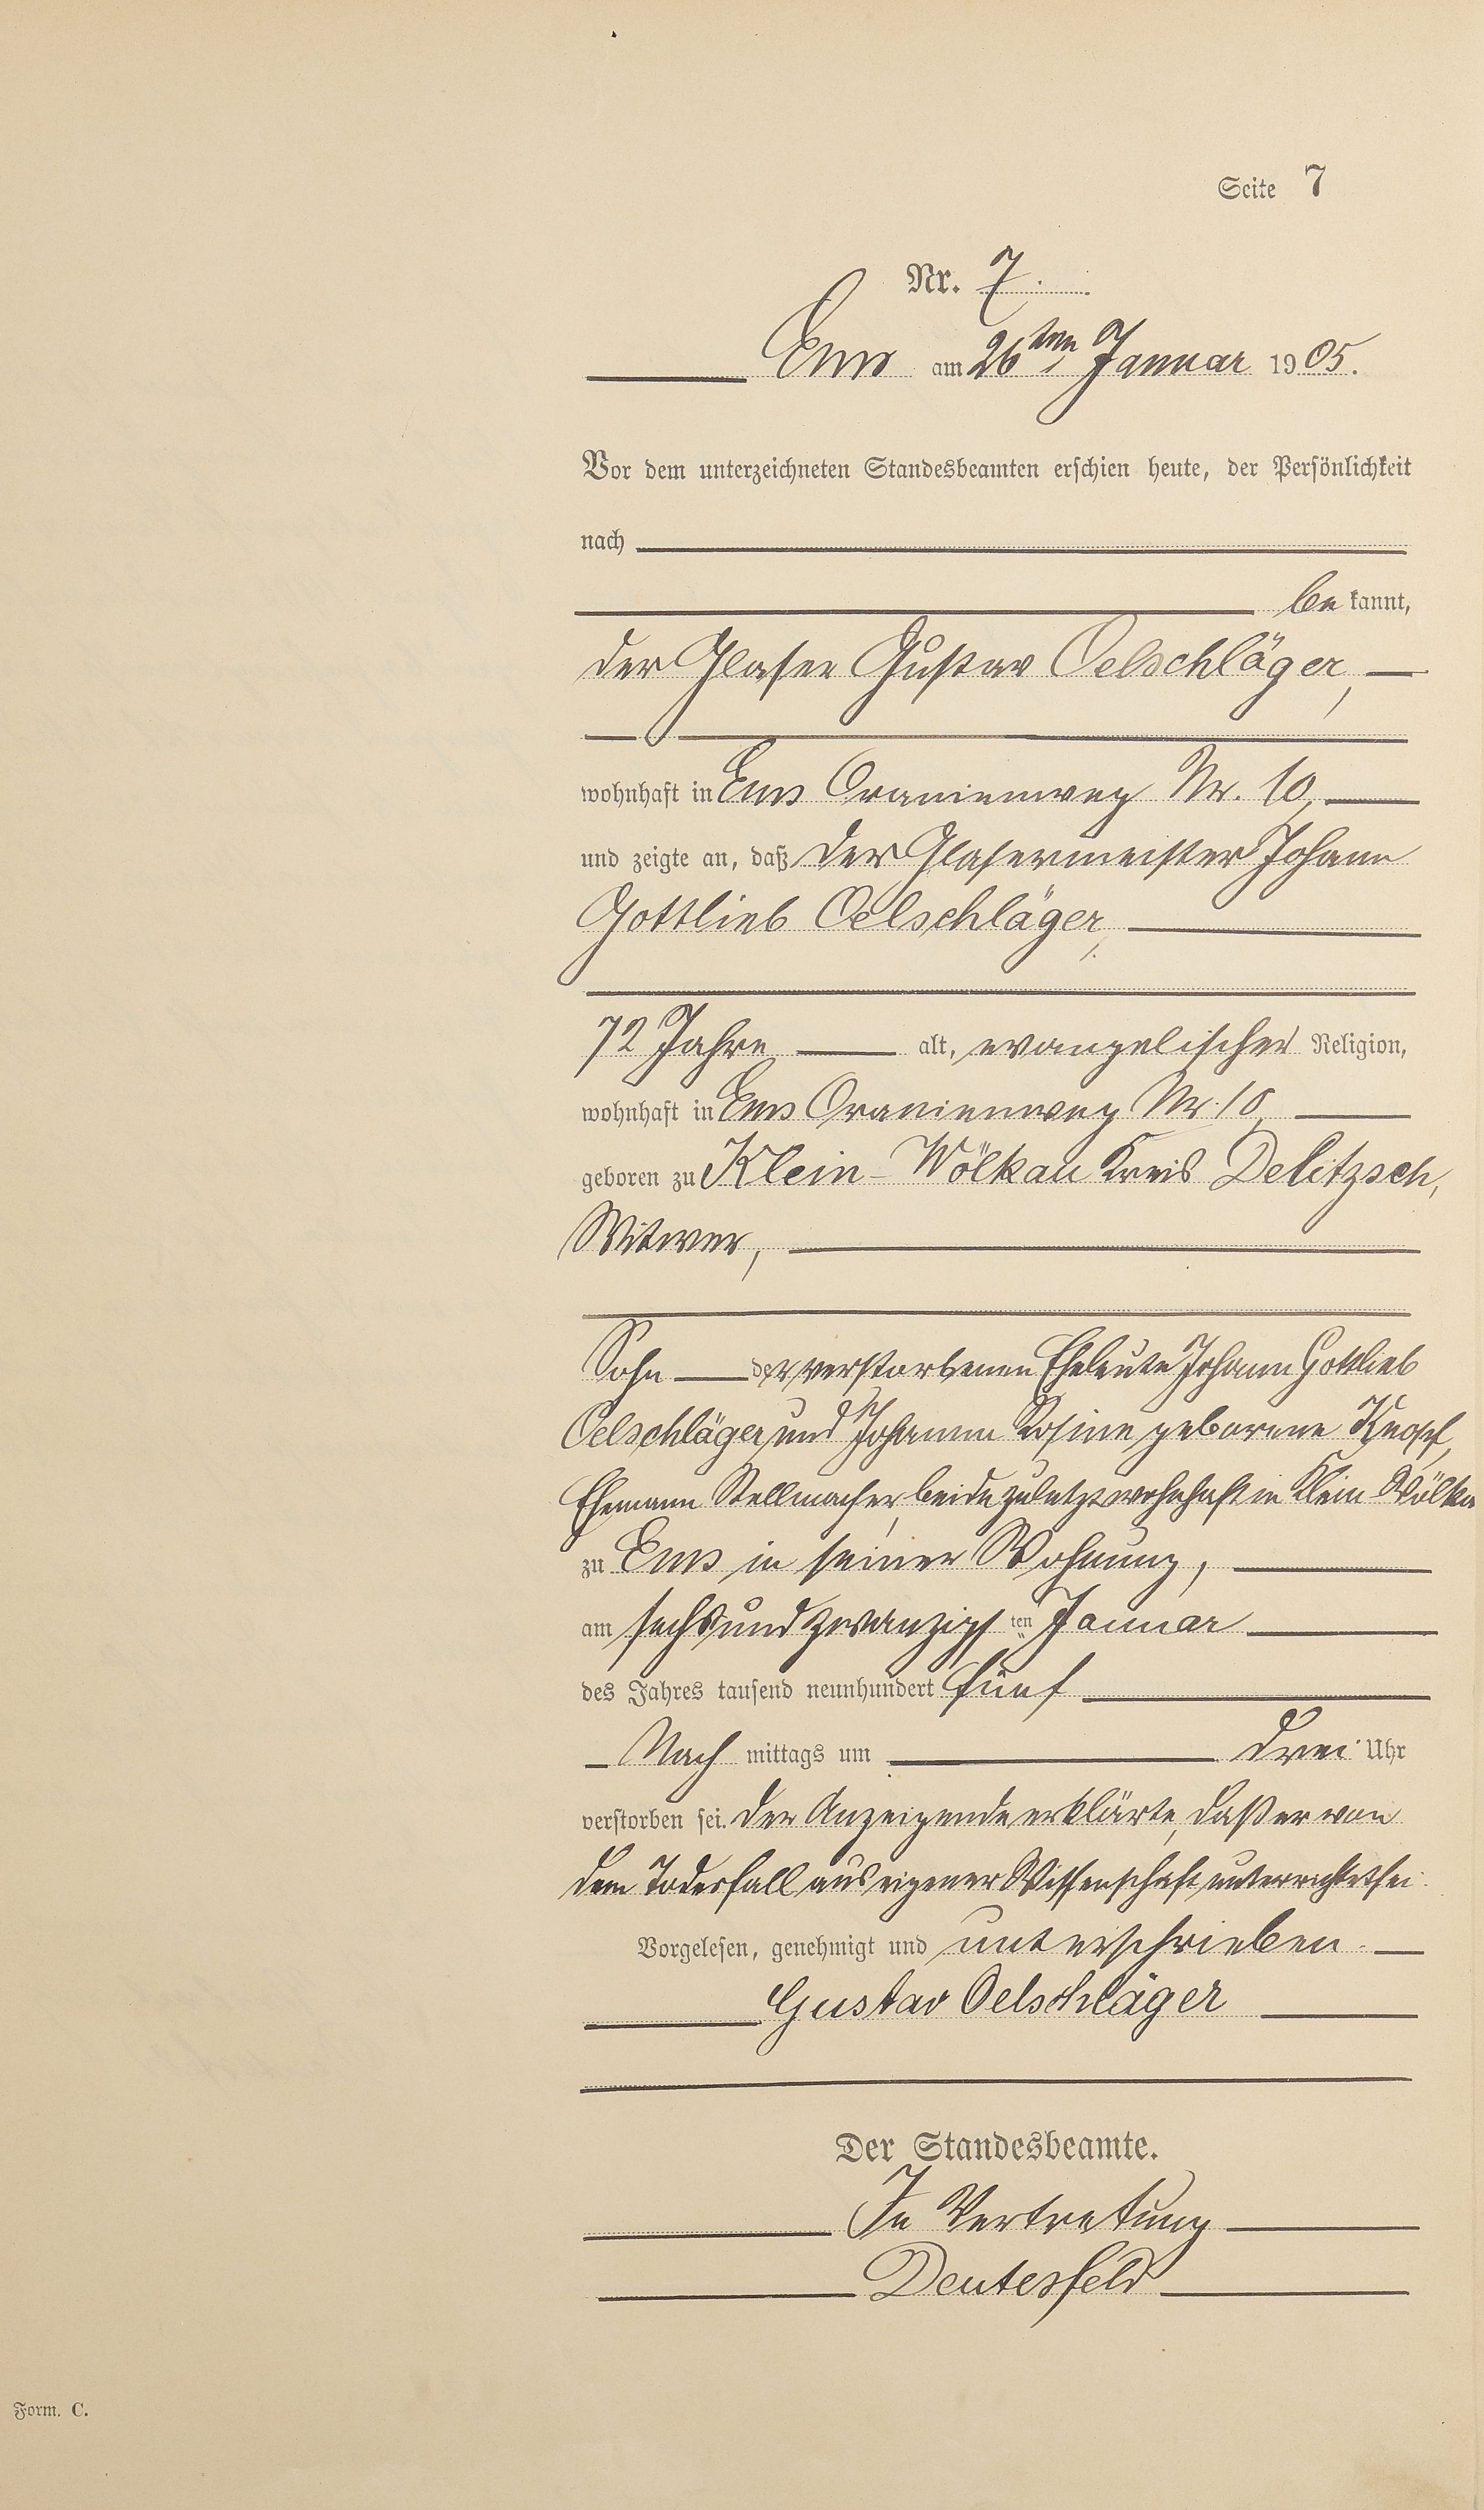 Seite 7
Nr. 7.
Ems am 26ten Januar 1905.
Vor dem unterzeichneten Standesbeamten erschien heute, der Persönlichkeit
nach
be kannt,
der Glaser Gustav Oelschläger,
wohnhaft in Ems Oranienweg Nr. 10,
und zeigte an, daß der Glasermeister Johann
Gottlieb Oelschläger,
72 Jahre alt, evangelischer Religion,
wohnhaft in Ems Oranienweg Nr. 10,
geboren zu Klein-Wölkau Kreis Delitzsch,
Witwer,
Sohn der verstorbenen Eheleute Johann Gottlieb
Oelschläger und Johanna Rosine geborene Knopf,
Ehemann Stellmacher, beide zuletzt wohnhaft in Klein Wölkau
zu Ems in seiner Wohnung,
am sechsundzwanzigsten Januar
des Jahres tausend neunhundert fünf
Nach mittags um drei Uhr
verstorben sei. Der Anzeigende erklärte, daß er von
dem Todesfall aus eigener Wissenschaft unterrichtet sei.
Vorgelesen, genehmigt und unterschrieben.
Gustav Oelschläger
Der Standesbeamte.
In Vertretung
Deutesfeld
Form. C.